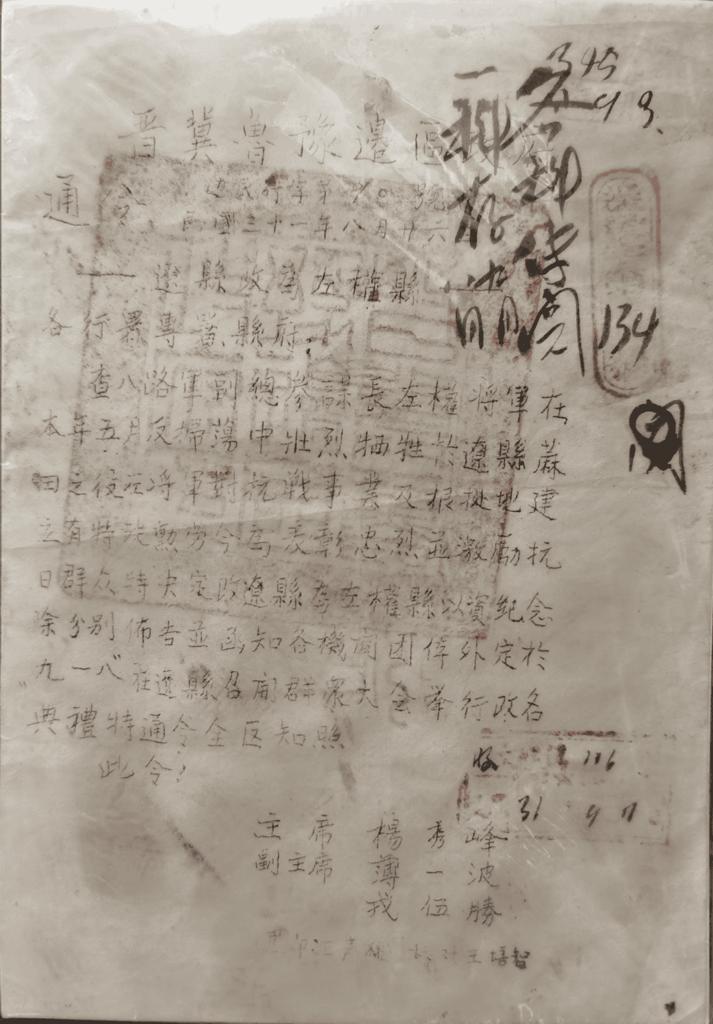 晋冀魯豫邊區政府
通令
民國三十一年八月廿六
遼縣改爲左權縣
各行署專署縣府：
查八路軍副總參謀長左權將軍在
本年五月反掃蕩中壯烈牺牲於遼縣蔴
田之役
將軍對抗戰事業及根據地建
立有特殊勳劳今為表彰忠烈並激勵抗
日群众特决定改遼縣為左權縣以資紀念
除分别佈告並函知各機関团体外定於
“九一八”在遼縣召開群衆大会举行改名
典禮特通令全区知照
此令！
主席 楊秀峰
副主席 薄一波
戎伍勝
各科傳閲
一科存
134
收 116
31 9 11